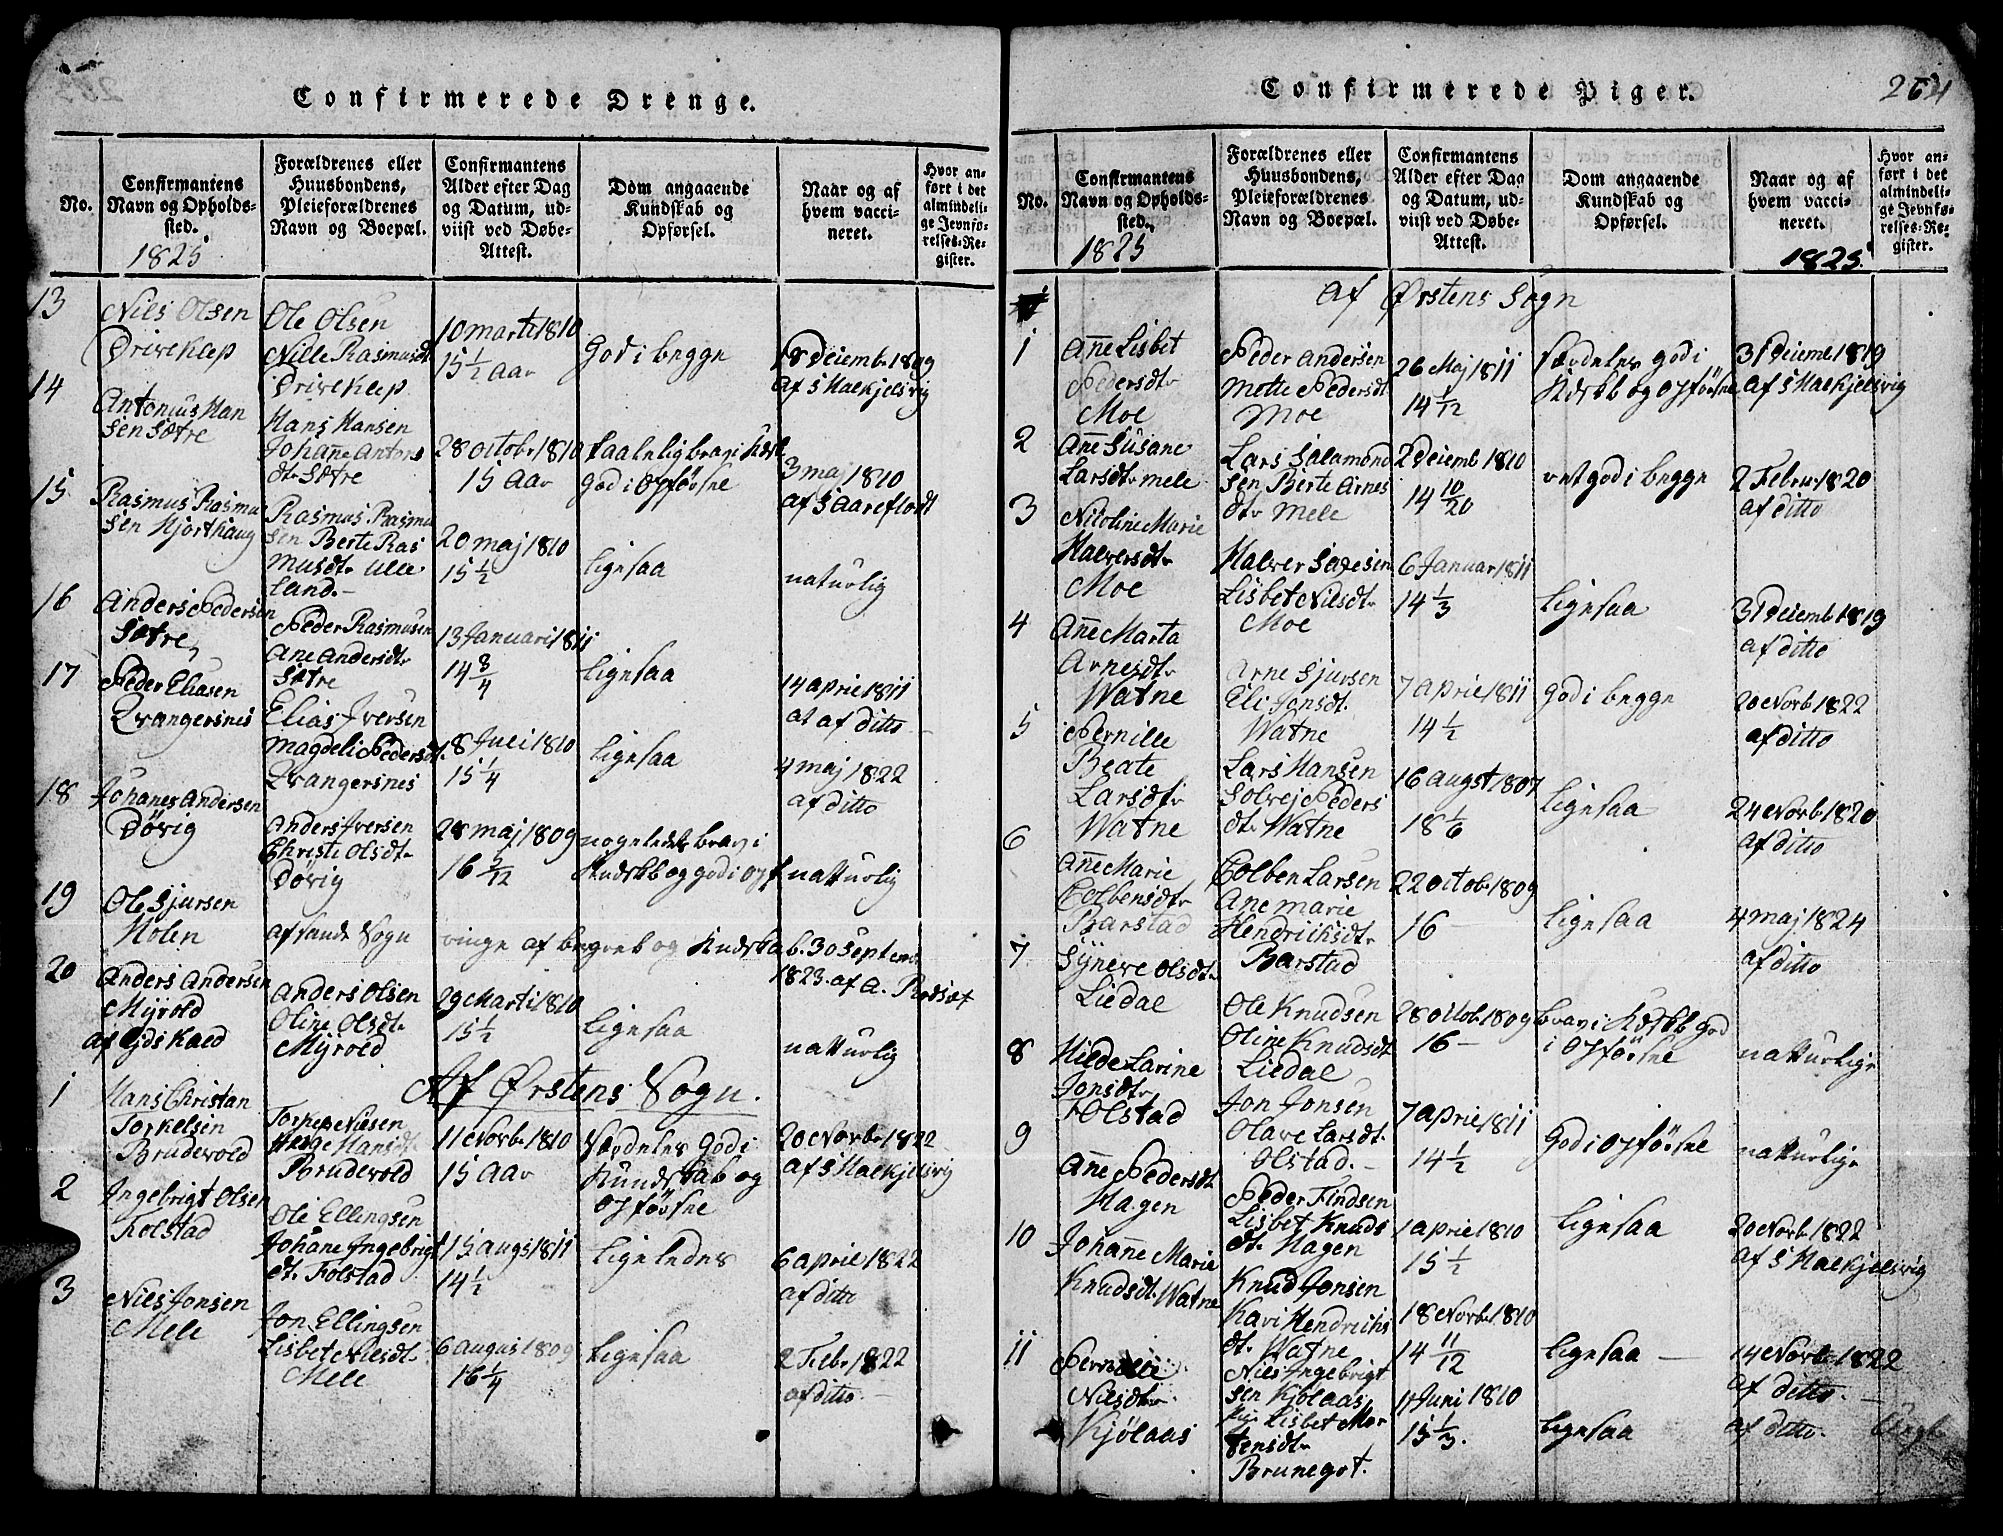 Confirmerede Drenge.
No.
Confirmantens
Navn og Opholds-
sted.
1825
Forældrenes eller
Huusbondens,
Pleieforældrenes
Navn og Boepæl.
Confirmantens
Alder efter Dag
og Datum, ud-
viist ved Døbe-
Attest.
Dom angaaende
Kundskab og
Opførsel.
Naar og af
hvem vacci-
neret.
Hvor an-
ført i det
almindeli-
ge Jevnfø-
relses-Re-
gister.
13
Niels Olsen
Driveklep
Ole Olsen
Nille Rasmusdt
Driveklep
10 marti 1810
15 1/2 Aar
God i begge
18 Decemb 1809
af S Maekjelsvig
14
Antonius Han
sen Sætre
Hans Hansen
Johañe Antons
dtr Sætre
28 octobr 1810
15 Aar
taalelig brav i
God i Opførsle
3 maj 1810
af S Aareflodt
15
Rasmus Rasmu
sen Hjorthaug
Rasmus Rasmu
sen Berte Ras
musdtr Ulle
land.-
20 maj 1810
15 1/2
ligesaa
naturlig
16
Anders Pedersen
Sætre
Peder Rasmusen
Ane Andersdtr
Sætre
13 Januari 1811
14 8/4
ligesaa
14 april 1811
at af ditto
17
Peder Eliasen
Qvangersnes
Elias Iversen
Magdeli Pedersdt.
Qvangersnes
8 Juli 1810
15 1/4
ligesaa
4 maj 1822
af ditto
18
Johanes Andersen
Døvig
Anders Iversen
Christi Olsdtr
Døvig
28 maj 1809
16 5/12
nogeledes brav i
Kudskb og god i Opf
naturlig
19
Ole Sjursen
Holen
af sande Sogn
ringe af begreb og Kudskab
30 Septemb
1823. af A. Rødsæt
20
Anders Andersen
Myrold
Anders Olsen
Oline Olsdtr
Myrold
29 Marti 1810
15 1/2
ligesaa
naturlig
Af Ørstens Sogn.
1
Hans Christan
Torkelsen
Brudevold
Torkel Nilsen
Hansdt
Brudevold
11 Novbr 1810
15 Aar
Særdeles God i
Kundskab og
Opførsle
20 Novbr 1822
af S Maekjelsvig
2
Ingebrigt Olsen
Folstad
Ole Ellingsen
Johañe Ingebrigt
dt. Folstad
15 augs 1811
14 1/2
ligeledes
6 april 1822
af ditto
3
Niels Jonsen
Mele
Jon Ellingsen
Lisbet Nielsdt.
Mele
6 august 1809
16 1/4
ligesaa
2 Febr 1822
af ditto
Confirmerede Piger.
264
No.
Confirmantens
Navn og Opholds-
sted.
1825
Forældrenes eller
Huusbondens,
Pleieforældrenes
Navn og Boepæl.
Confirmantens
Alder efter Dag
og Datum, ud-
viist ved Døbe-
Attest.
Dom angaaende
Kundskab og
Opførsel.
Naar og af
hvem vacci-
neret.
1825.
Hvor an-
ført i det
almindeli-
ge Jevnfø-
relses-Re-
gister.
Af Ørstens Sogn
1
Añe Lisbet
Pedersdtr
Moe
Peder Andersen
Mette Pedersdt.
Moe
26 Maj 1811
14 1/12
særdeles god i
Kdskb og Opførsle
31 Deiemb 1819
af S Maekjelsvig
2
Añe Susane
Larsdtr mele
Lars Salamond
sen Berte Arnes
dtr Mele
2 Deiemb 1810
14 10/20
ret god i begge
2 Februr 1820
af ditto
3
Nicoline Marie
Halversdtr
Moe
Lisbet Nielsdtr
Moe
6 Januar 1811
14 1/3
ligesaa
31 Deiemb 1819
af ditto
4
Añe Marta
Arnesdtr
Watne
Arne Sjursen
Eli Jonsdt.
Watne
7 april 1811
14 1/2
God i begge
20 Novb 1822
af ditto
5
Pernille
Beate
Larsdtr
Watne
Lars Hansen
Solvej Peders
dtr Watne
16 augst 1807
18 1/6
ligesaa
24 Novb 1820
af ditto
6
Añe Marie
Colbensdtr
Barstad
Colben Larsen
Ane marie
Hendrichsdtr
Barstad
22 octob 1809
16 —
ligesaa
4 maj 1824
af ditto
7
Syneve Olsdtr
Liedal
Ole Knudsen
Oline Knudsdt
Liedal
28 octob 1809
16 —
brav i Kdskb God
i Opførsle
naturlig
8
Hilde Larine
Jonsdtr
Folstad
Jon Jonsen
Olave Larsdt.
Olstad.-
7 april 1811
14 1/2
God i Opførsle
naturlig
9
Añe Pedersdt
Hagen
Peder Findsen
Lisbet Knuds
dt. Hagen
1 april 1810
15 1/2
ligesaa
20 Novb 1822
af S Maekjelsvig
10
Johañe Marie
Knudsdt. Watne
Knud Jonsen
Kari Hendrichs
dt. Watne
18 Novb 1810
14 11/12
ligesaa —
14 Novb 1822
af ditto.
11
Pernille
Nilsdtr
Kjølaas
Niels Ingebrigt
sen Kjølaas
Lisbet Mor
tensdtr
Brunegot.
11 Juni 1810
15 1/3.
ligesaa
af ditto.